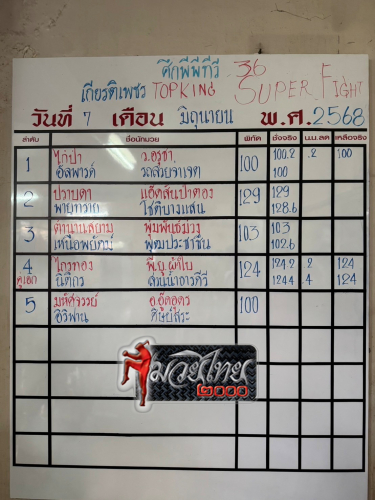 ศึกพีพีทีวี 36
เกียรติเพชร TOPKING SUPER FIGHT
วันที่ 7 เดือน มิถุนายน พ.ศ. 2568
ลำดับ ชื่อนักมวย พิกัด ชั่งจริง น.น.ลด เหลือจริง
1 ไก่ป่า ว.อรุชา. 100 100.2 .2 100
อัลฟาร์ด รถสวยจาเจต 100
2 ปราบดา แอ๊ดสันป่าตอง 129 129
พายุทราย โชติบางแสน 128.6
3 ตำนานสยาม พุ่มพันธ์ม่วง 103 103
เหนือพยัคฆ์ พุฒประชาชื่น 102.6
4 ไกรทอง 124 124.2 .2 124
คู่เอก นิติกร 124.4 .4 124
5 มหัศจรรย์ 100
ศิริพาน ศิษย์สระ
มวยไทย
๒๐๐๐